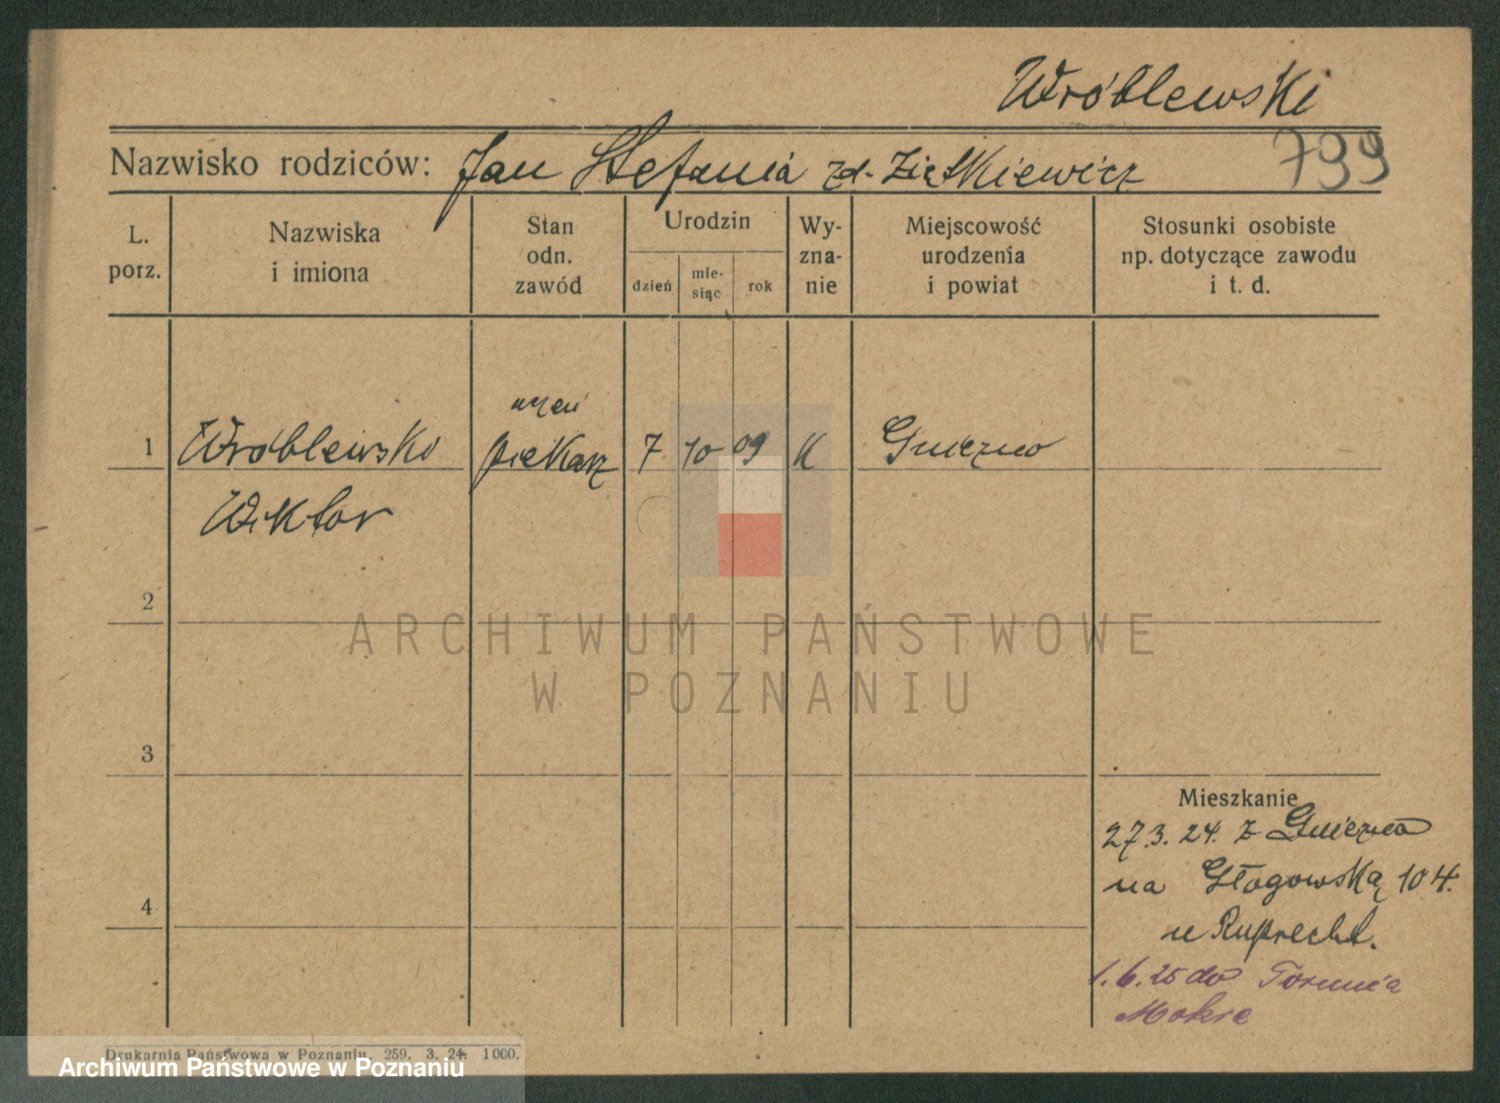 Wróblewski
799
Nazwisko rodziców: Jan Stefania zd. Ziętkiewicz
L. porz.
Nazwiska i imiona
Stan odn. zawód
Urodzin
dzień
mie-siąc
rok
Wy-zna-nie
Miejscowość urodzenia i powiat
Stosunki osobiste np. dotyczące zawodu i t. d.
uczeń
1 Wróblewski piekarz 7 10 09 K Gniezno
Wiktor
2
ARCHIWUM PAŃSTWOWE
W POZNANIU
3
Mieszkanie
27.3.24. z Gniezna
na Głogowską 104.
4
u Ruprecht.
1.6.25 do Torunia
Mokre
Drukarnia Państwowa w Poznaniu. 259. 3. 24. 1000.
Archiwum Państwowe w Poznaniu